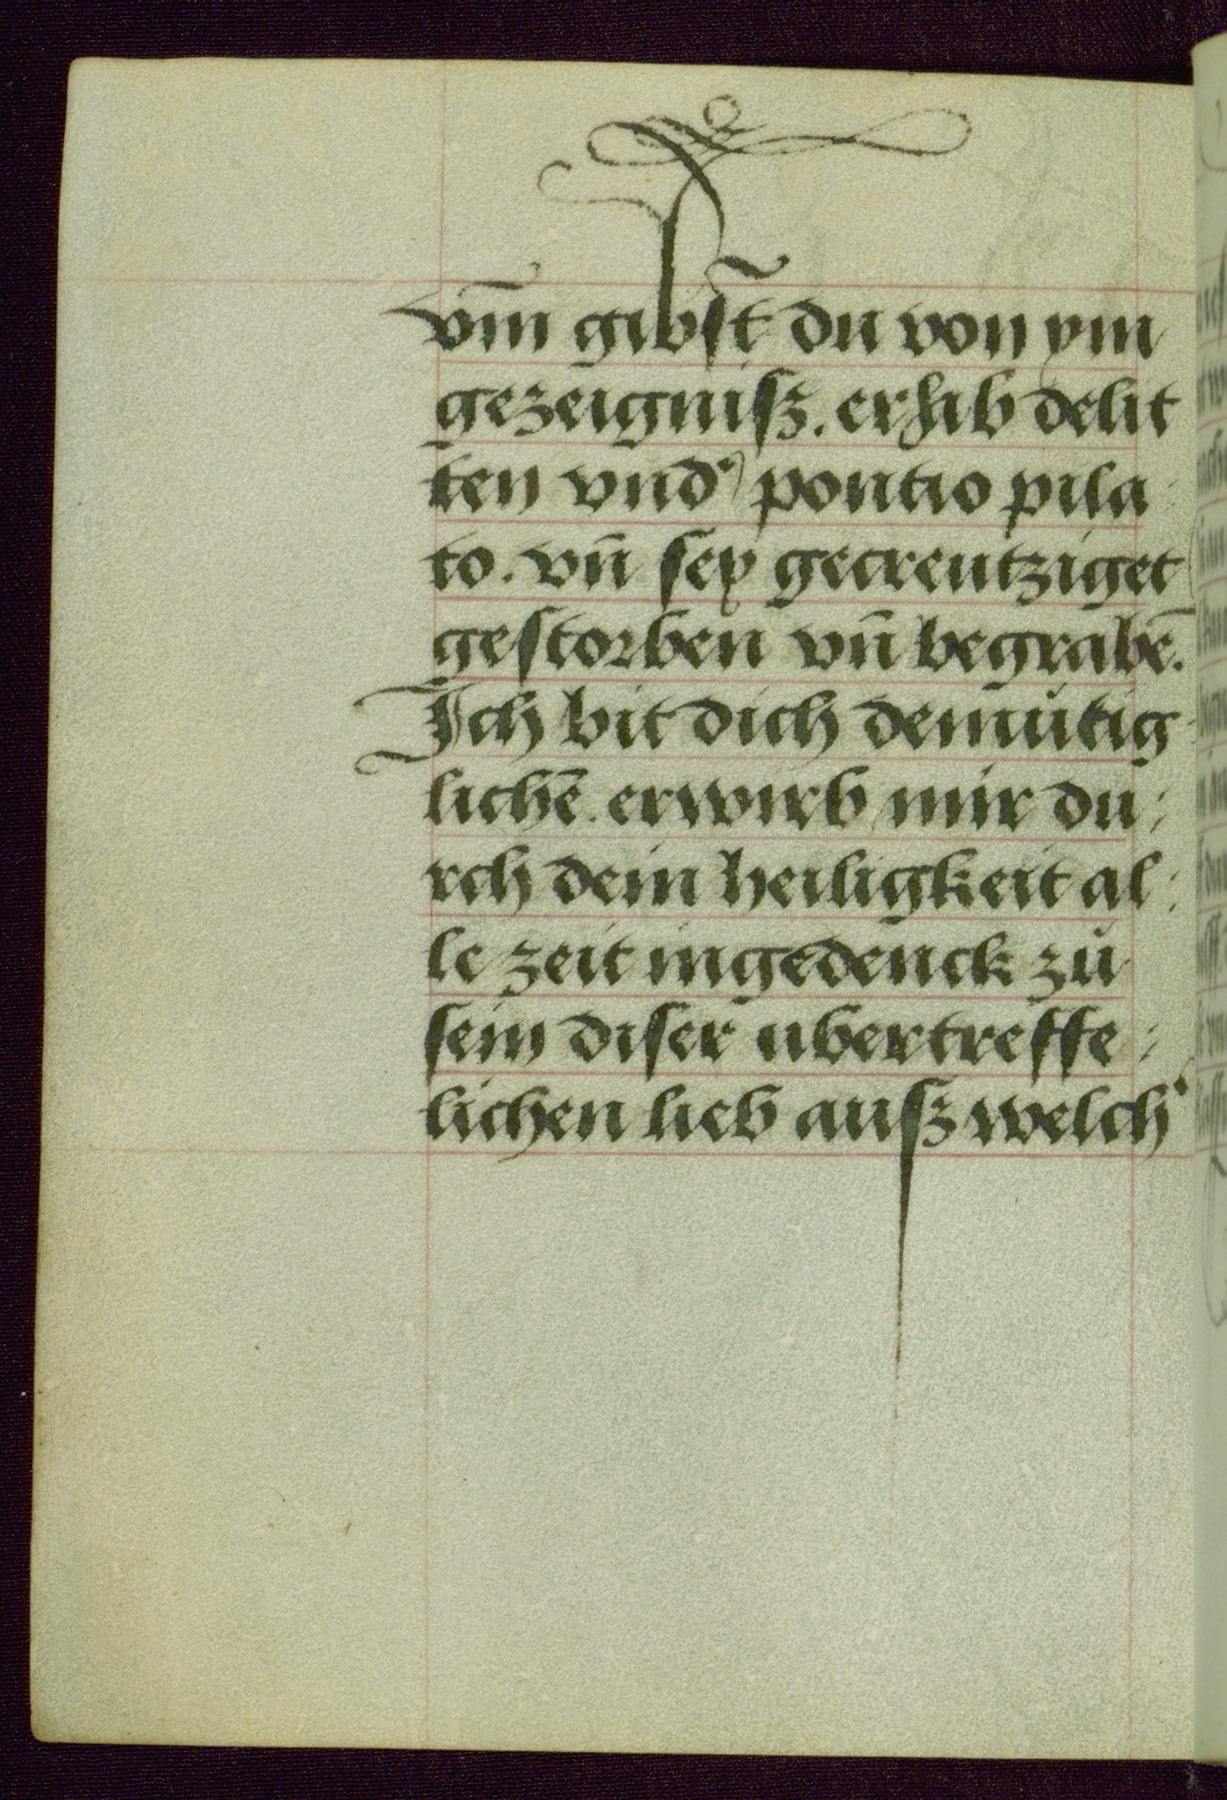 vm̄ gibst̄ du von ym
gezeigniſz. er hib delit
ten vnd' pontio pila
to. vn̄ ſey gecreutziget
geſtorben vn̄ begrabē.
Ich bit dich demuͤtig
lichē. erwirb mir du:
rch dein heiligkeit al:
le zeit ingedenck zuͦ
ſein diſer ubertreffe:
lichen lieb auſz welch'